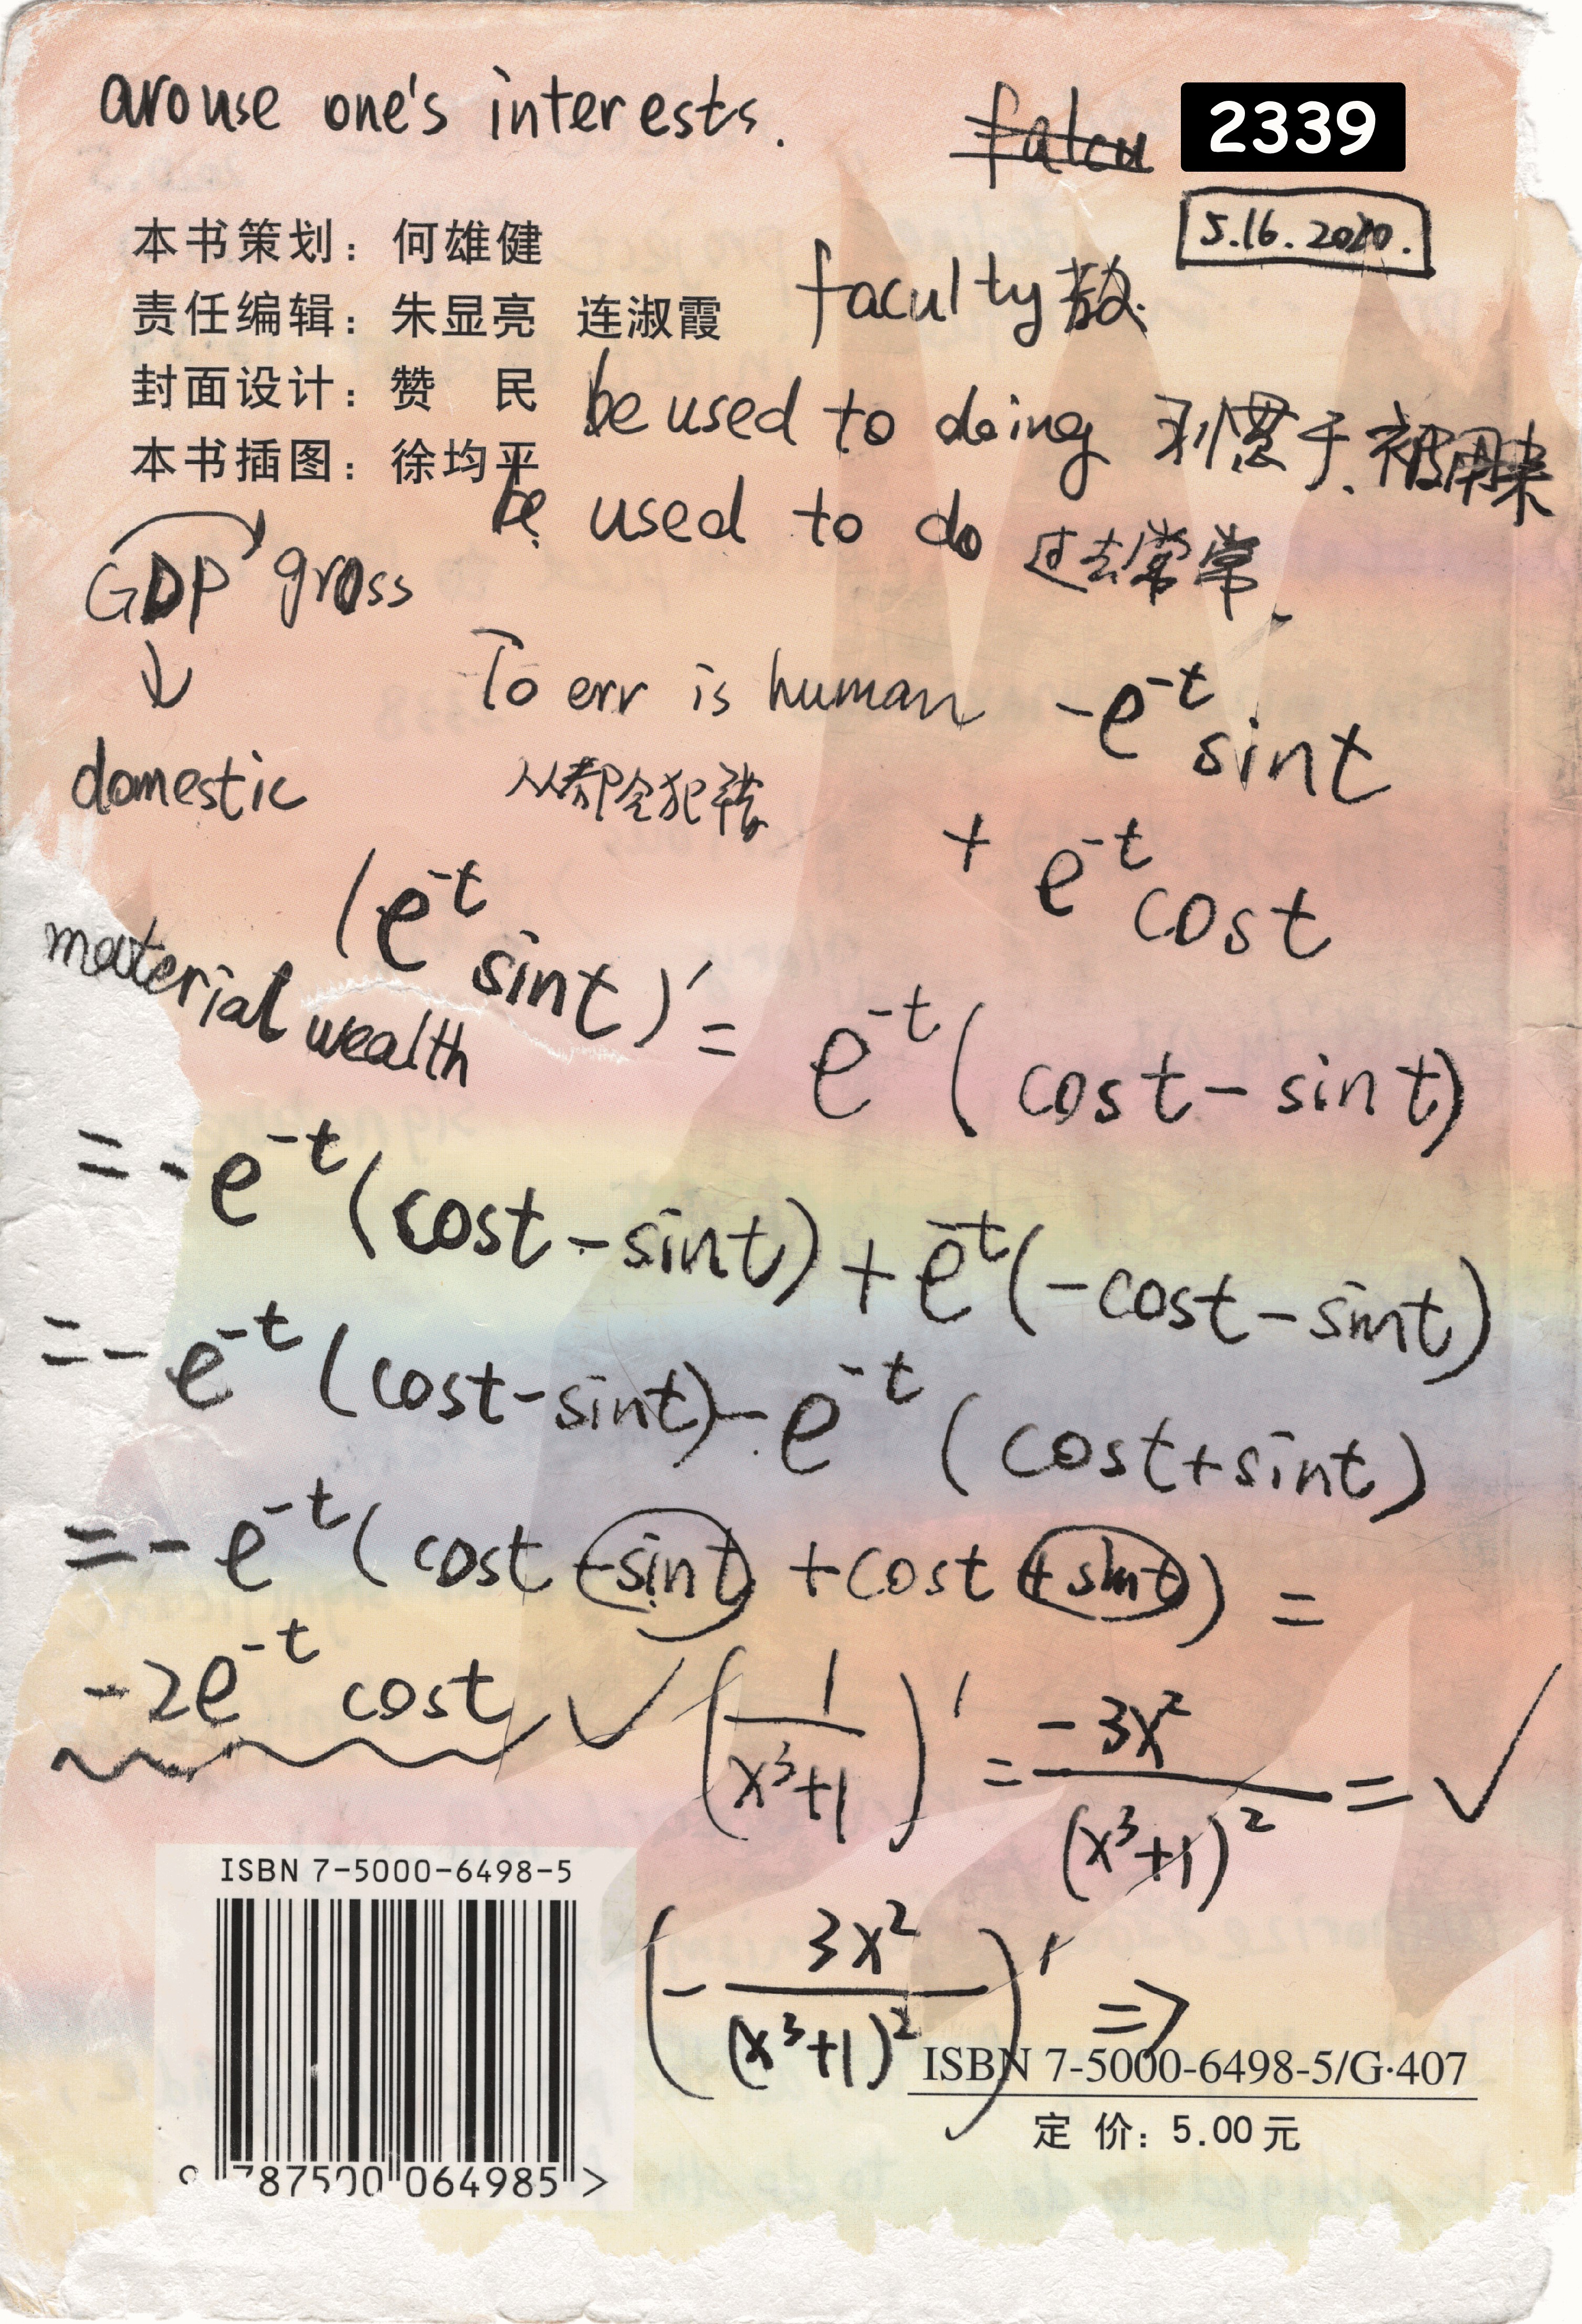 arouse one's interests.
falcu
2339
5.16.2020.
本书策划：何雄健
责任编辑：朱显亮 连淑霞
封面设计：赞 民
本书插图：徐均平
faculty 教
be used to doing 习惯于.被用来
be used to do 过去常常
GDP gross
↓
domestic
To err is human
人人都会犯错
-e^-t sint
+ e^-t cost
material wealth
(e^-t sint)' = e^-t(cost-sint)
=-e^-t(cost-sint)+e^-t(-cost-sint)
=-e^-t(cost-sint)-e^-t(cost+sint)
=-e^-t(cost-sint+cost+sint)=
-2e^-t cost ✓
(1/(x³+1))' = -3x²/(x³+1)² = ✓
(-3x²/(x³+1)²)' ⇒
ISBN 7-5000-6498-5
9 787500 064985 >
ISBN 7-5000-6498-5/G·407
定 价：5.00元